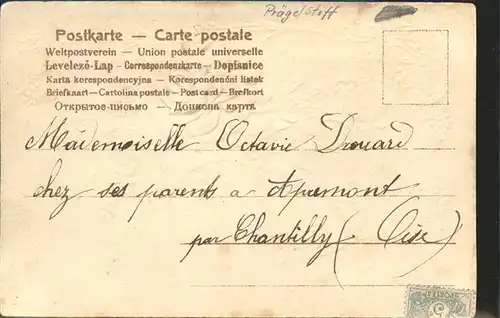 Prägestoff
Postkarte — Carte postale
Weltpostverein — Union postale universelle
Levelező-Lap — Correspondenzkarte — Dopisnice
Karta korespondencyjna — Korespondenční lístek
Briefkaart — Cartolina postale — Post card — Brefkort
Открытое письмо —
Mademoiselle Octavie Drouard
chez ses parents a Apremont
par Chantilly (Oise)
5